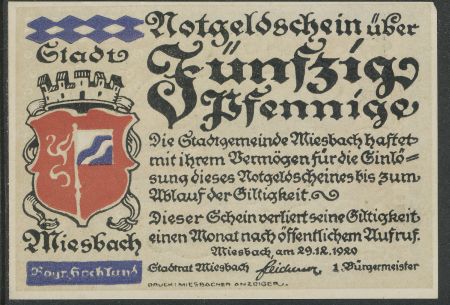 Notgeldschein über
Stadt
Fünfzig
Pfennige
Die Stadtgemeinde Miesbach haftet
mit ihrem Vermögen für die Einlö=
sung dieses Notgeldscheines bis zum
Ablauf der Giltigkeit.
Dieser Schein verliert seine Giltigkeit
einen Monat nach öffentlichem Aufruf.
Miesbach
Miesbach, am 29.12.1920
Bayr. Hochland
Stadtrat Miesbach 1. Bürgermeister
DRUCK: MIESBACHER ANZEIGER.